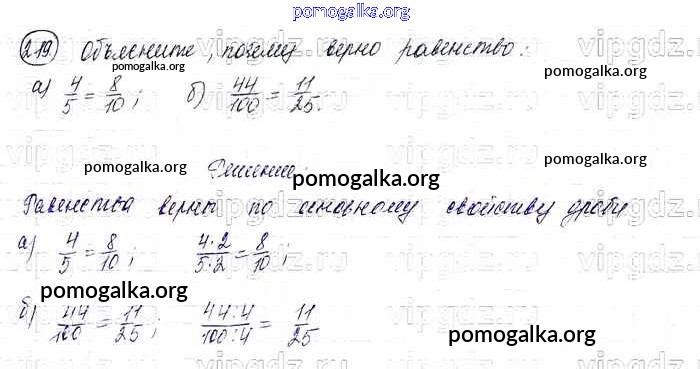 pomogalka.org
219. Объясните, почему верно равенство:
pomogalka.org pomogalka.org
а) 4/5 = 8/10; б) 44/100 = 11/25.
pomogalka.org Решение: pomogalka.org
pomogalka.org
Равенства верны по основному свойству дроби
а) 4/5 = 8/10; 4·2/5·2 = 8/10;
pomogalka.org
б) 44/100 = 11/25; 44:4/100:4 = 11/25
pomogalka.org
vipgdz.ru